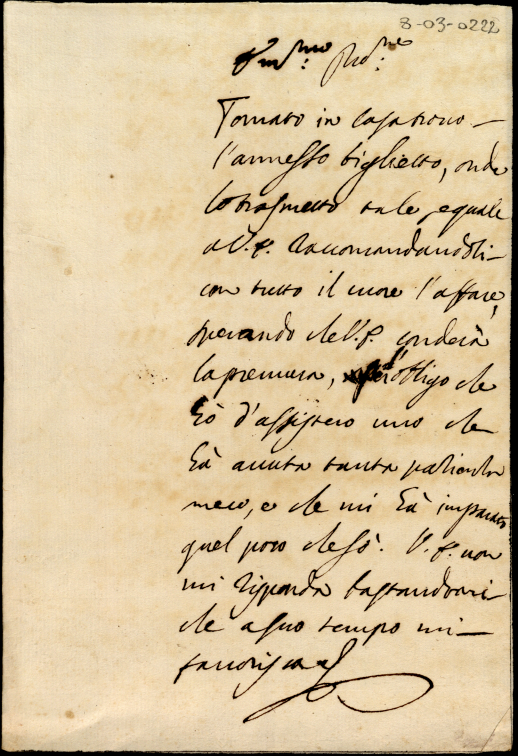 8-03-0222
Em.mo Pad.ne
Tornato in casa trovo
l'annesso biglietto, onde
lo trasmetto tale, e quale
a V. E. raccomandandoli
con tutto il cuore l'affare,
sperando che V. E. conderà
la premura, l'obligo che
hò d'assistere uno che
hà avuta tanta patienza
meco, e che mi hà imparato
quel poco che sò. V. E. non
mi risponda bastandomi
che a suo tempo mi
favorisca